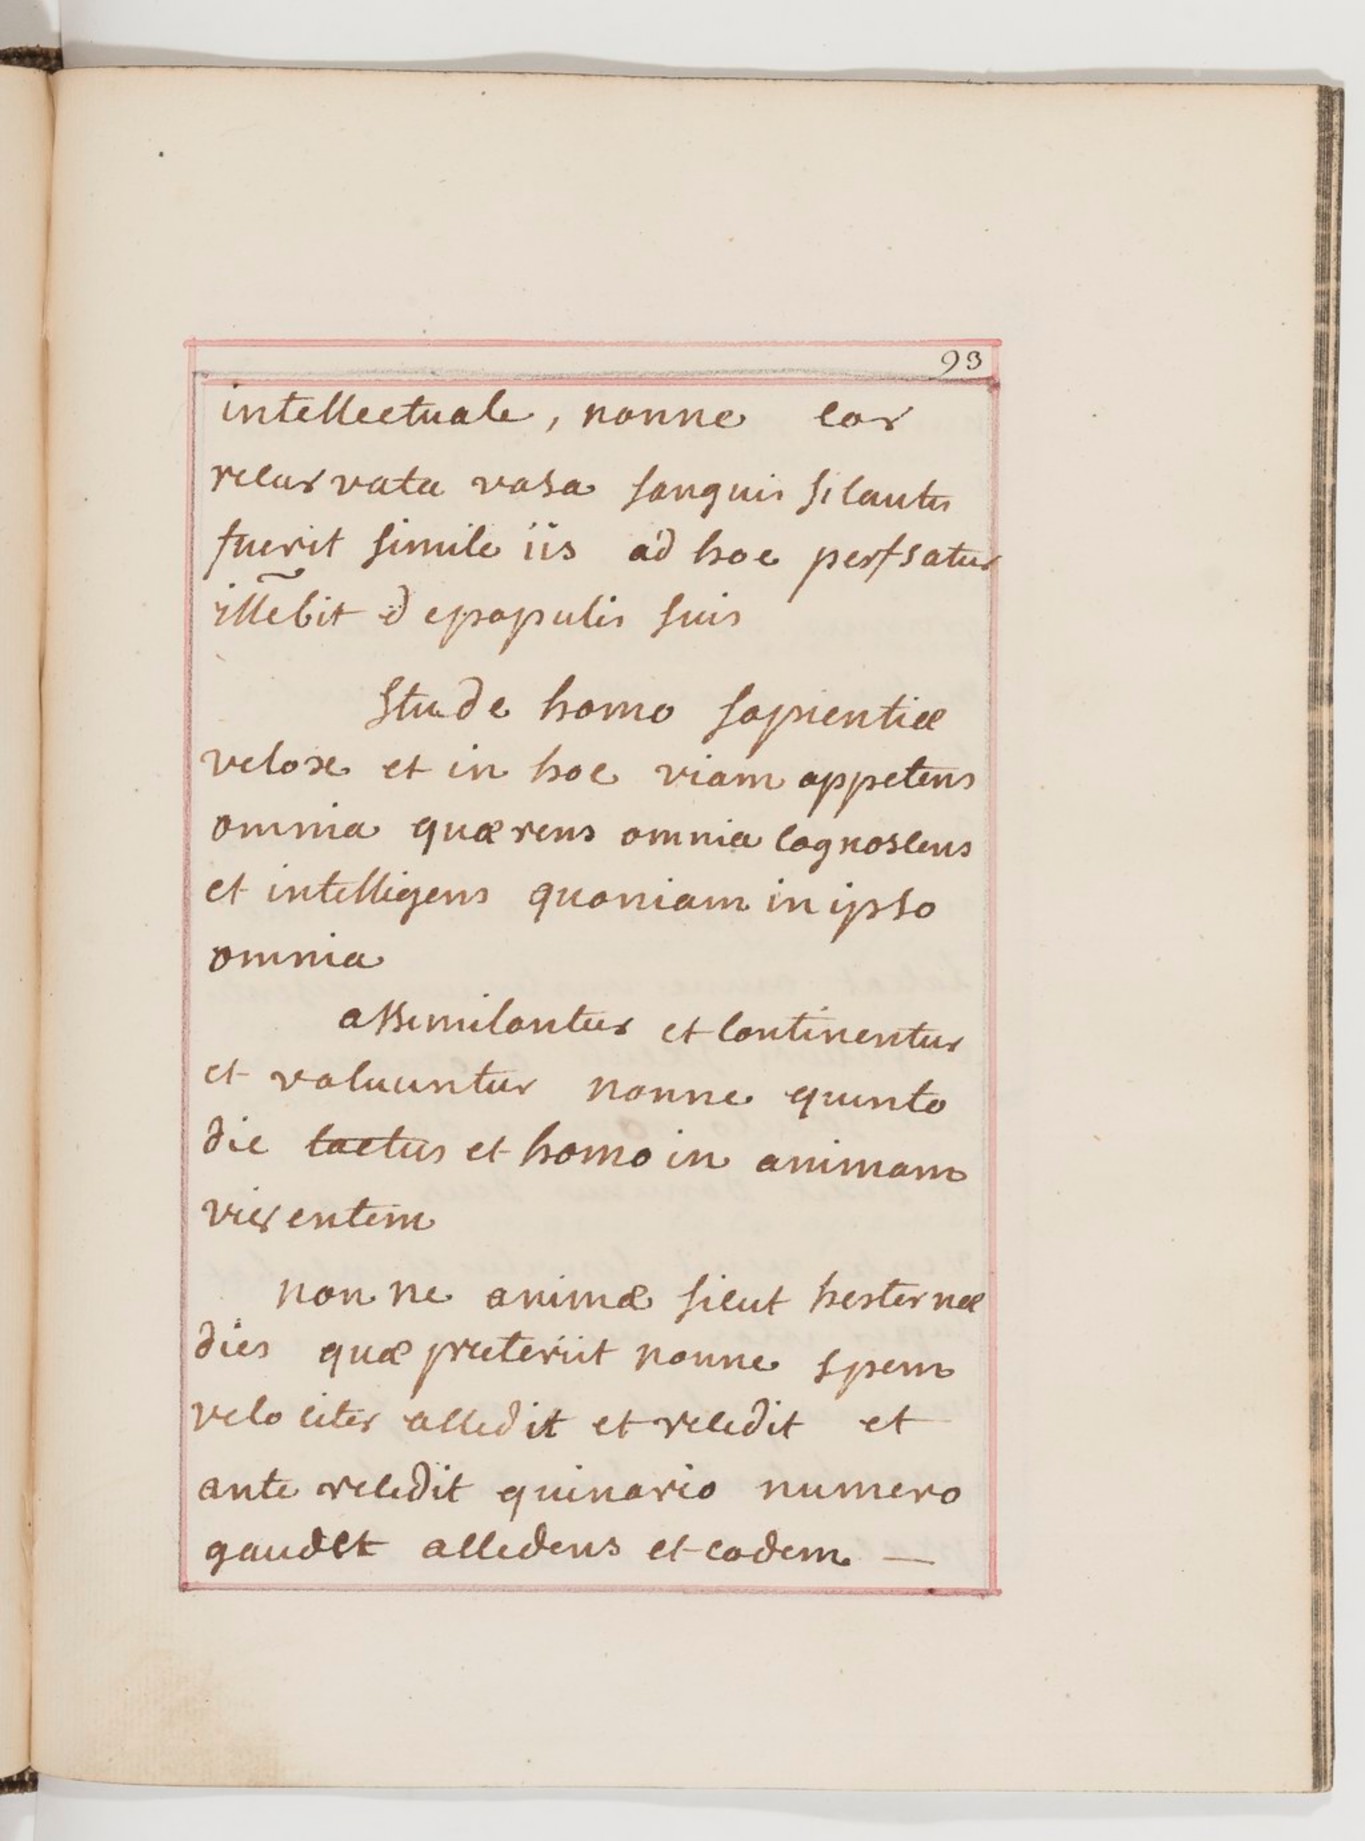 93
intellectuale, nonne cor
recurvata vasa sanguis sicautes
fuerit simile iis ad hoc perssatur
d epopulis suis
Stude homo sapientiæ
veloxe et in hoc viam appetens
omnia quærens omnia cognoscens
et intelligens quoniam in ipso
omnia
assimilantur et continentur
et voluuntur nonne quinto
die et homo in animam
viventem
non ne animæ sicut hesternæ
dies quæ preteriit nonne spem
velociter accedit et recedit et
ante recedit quinario numero
gaudet accedens et eodem —